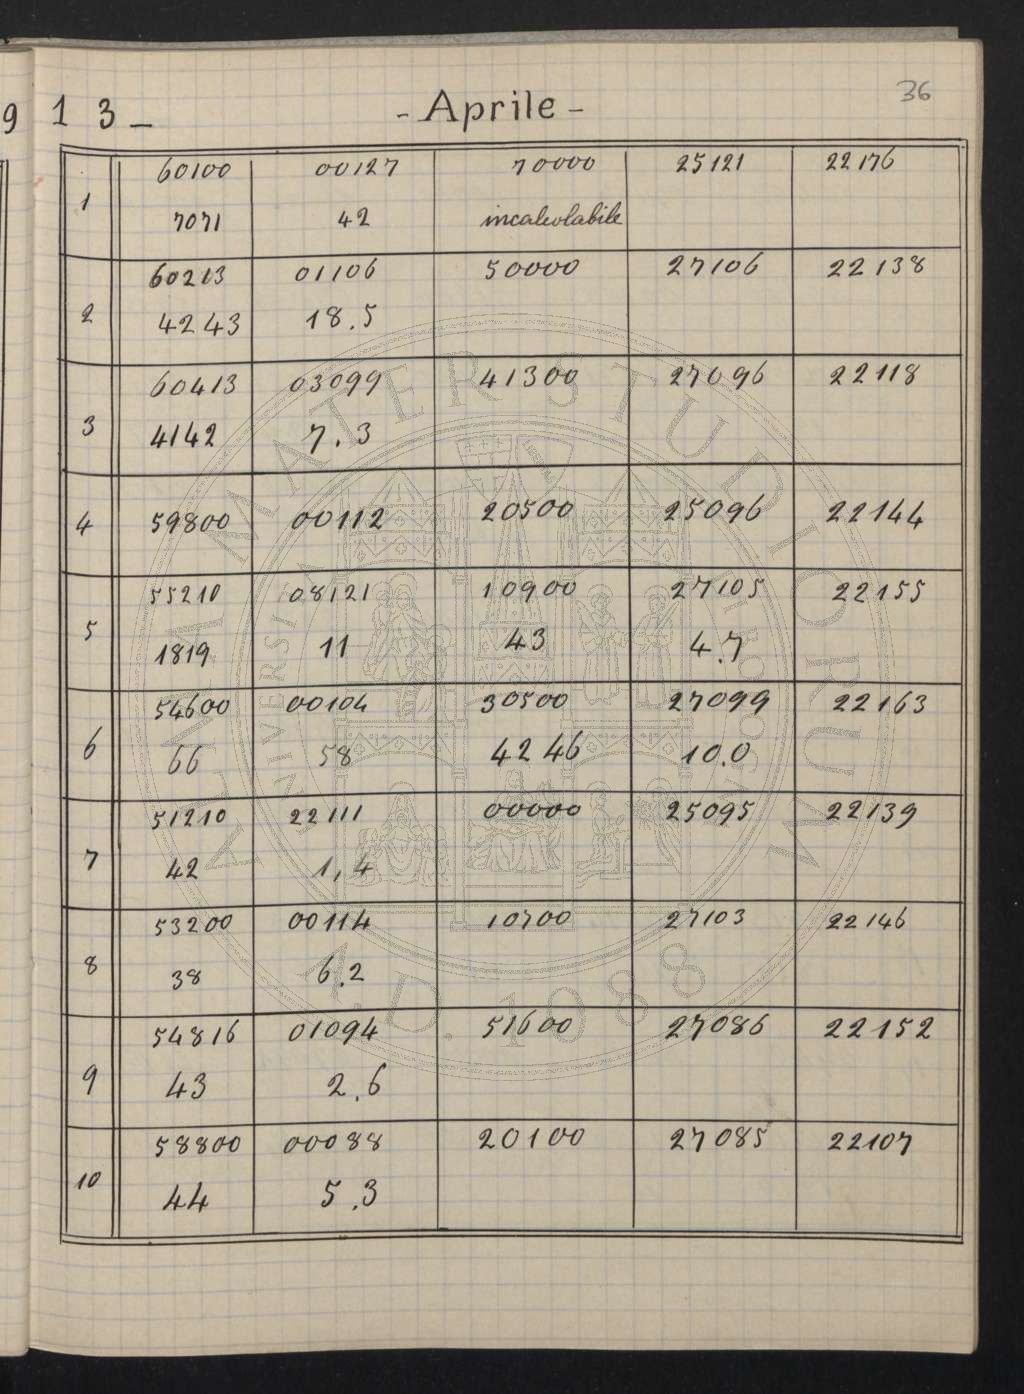 36
9 1 3 –
- Aprile -
1 60100 00127 70000 25121 22176
7071 42 incalcolabile
2 60213 01106 50000 27106 22138
4243 18.5
3 60413 03099 41300 27096 22118
4142 7.3
4 59800 00112 20500 25096 22144
5 55210 08121 10900 27105 22155
1819 11 43 4.7
6 54600 00104 30500 27099 22163
66 58 4246 10.0
7 51210 22111 00000 25095 22139
42 1,4
8 53200 00114 10700 27103 22146
38 6.2
9 54816 01094 51600 27086 22152
43 2.6
10 58800 00088 20100 27085 22107
44 5.3
ALMA MATER STUDIORUM
A.D. 1088